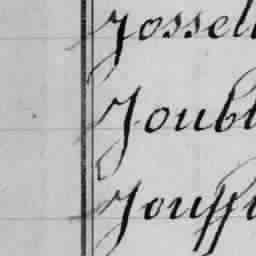 Jossel
Joubl
Jouffr